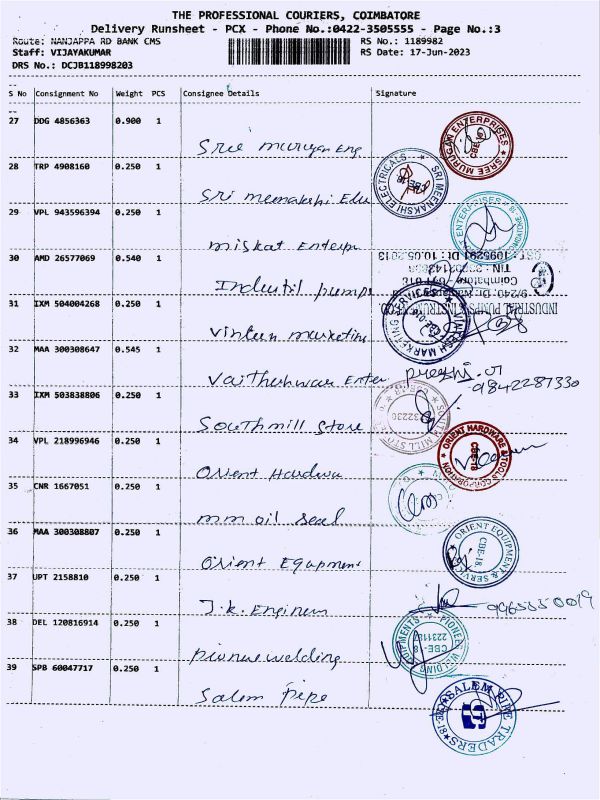 THE PROFESSIONAL COURIERS, COIMBATORE
Delivery Runsheet - PCX - Phone No.:0422-3505555 - Page No.:3
Route: NANJAPPA RD BANK CMS
RS No.: 1189982
Staff: VIJAYAKUMAR
RS Date: 17-Jun-2023
DRS No.: DCJB118998203
S No Consignment No Weight PCS Consignee Details Signature
27 DDG 4856363 0.900 1
Sree murugan Eng
SREE MURUGAN ENTERPRISES
CBE-18
28 TRP 4908160 0.250 1
Sri meenakshi Ele
SRI MEENAKSHI ELECTRICALS
CBE-18
29 VPL 943596394 0.250 1
miskat Enterpr
ENTERPRISES
30 AMD 26577069 0.540 1
Industil pumps
CST : 1095291 Dt : 10.05.2013
Coimbatore
INDUSTRIAL PUMPS & INSTRUM
31 IXM 504004268 0.250 1
marketing
MARKETING SERVICES
32 MAA 300308647 0.545 1
Enter
9842287330
33 IXM 503838806 0.250 1
South mill Store
SOUTH MILL STORE
34 VPL 218996946 0.250 1
Orient Hardwa
ORIENT HARDWARE & TOOLS CORPORATION
CBE-18
35 CNR 1667051 0.250 1
mm oil seal
36 MAA 300308807 0.250 1
Orient Eqapment
ORIENT EQUIPMENT & SERVICE
CBE-18
37 UPT 2158810 0.250 1
J.k. Engineer
38 DEL 120816914 0.250 1
pioneer welding
PIONEER WELDING
CBE-18
39 SPB 60047717 0.250 1
Salem pipe
SALEM PIPE TRADERS
CBE-18